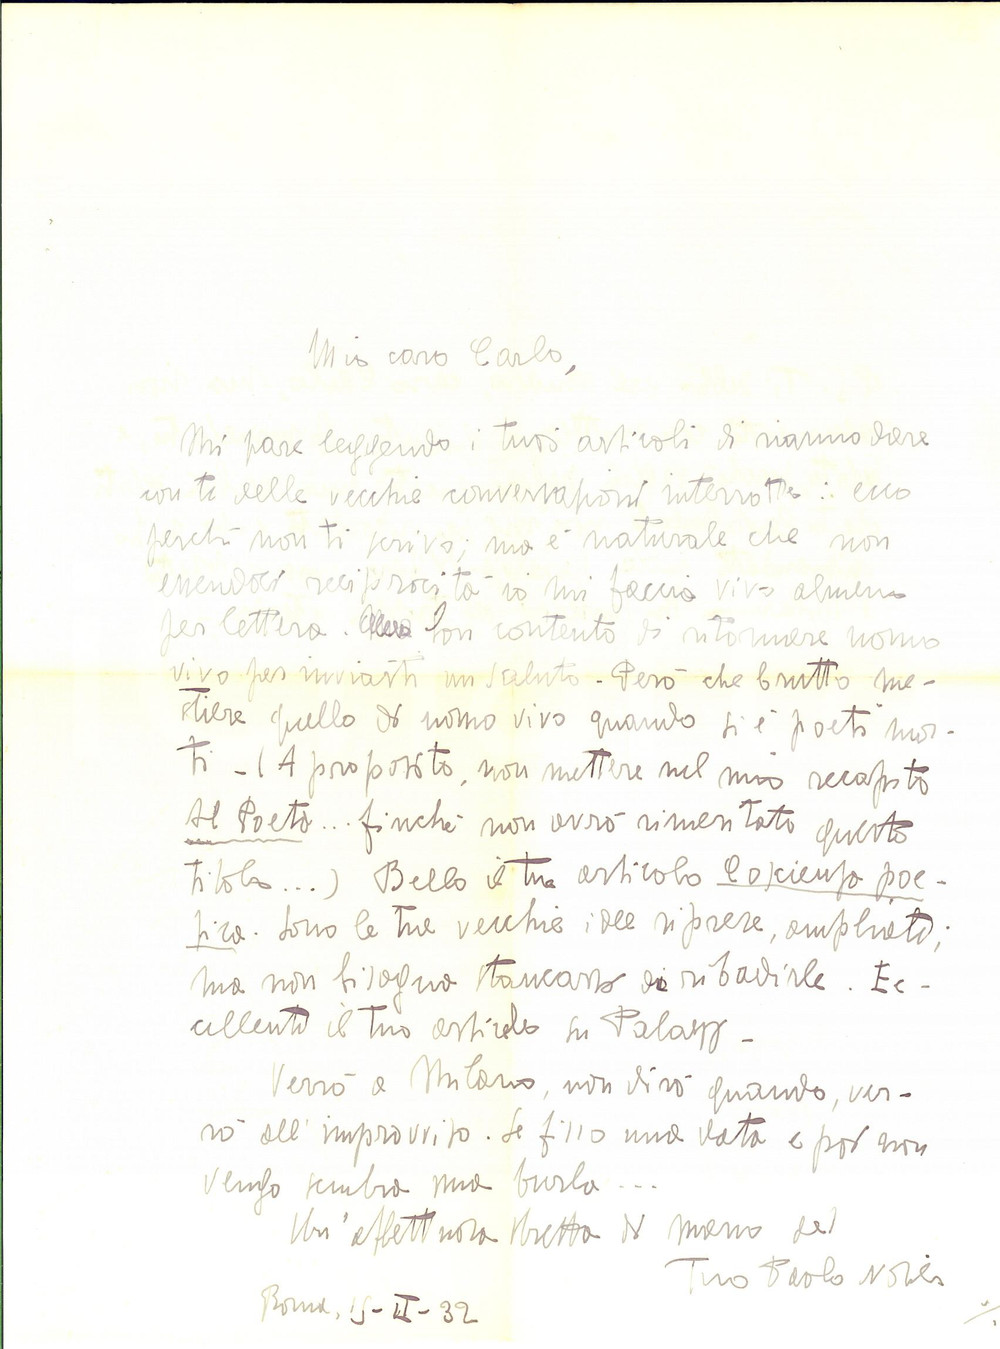 Mio caro Carlo,
Mi pare leggendo i tuoi articoli di riannodare
con te delle vecchie conversazioni interrotte: ecco
perché non ti scrivo; ma è naturale che non
essendoci reciprocità io mi faccia vivo almeno
per lettera. Son contento di ritornare uomo
vivo per inviarti un saluto. Però che brutto me-
stiere quello di uomo vivo quando si è poeti mor-
ti - (A proposito, non mettere nel mio recapito
Al Poeta... finché non avrò rimeritato questo
titolo...) Bello il tuo articolo Coscienza poe-
tica. Sono le tue vecchie idee riprese, ampliate;
ma non bisogna stancarsi di ribadirle. Ec-
cellente il tuo articolo su Palazz -
Verrò a Milano, non dirò quando, ver-
rò all'improvviso. Se fisso una data e poi non
vengo sembra una burla...
Un'affettuosa stretta di mano dal
Tuo Paolo
Roma, 15-II-32